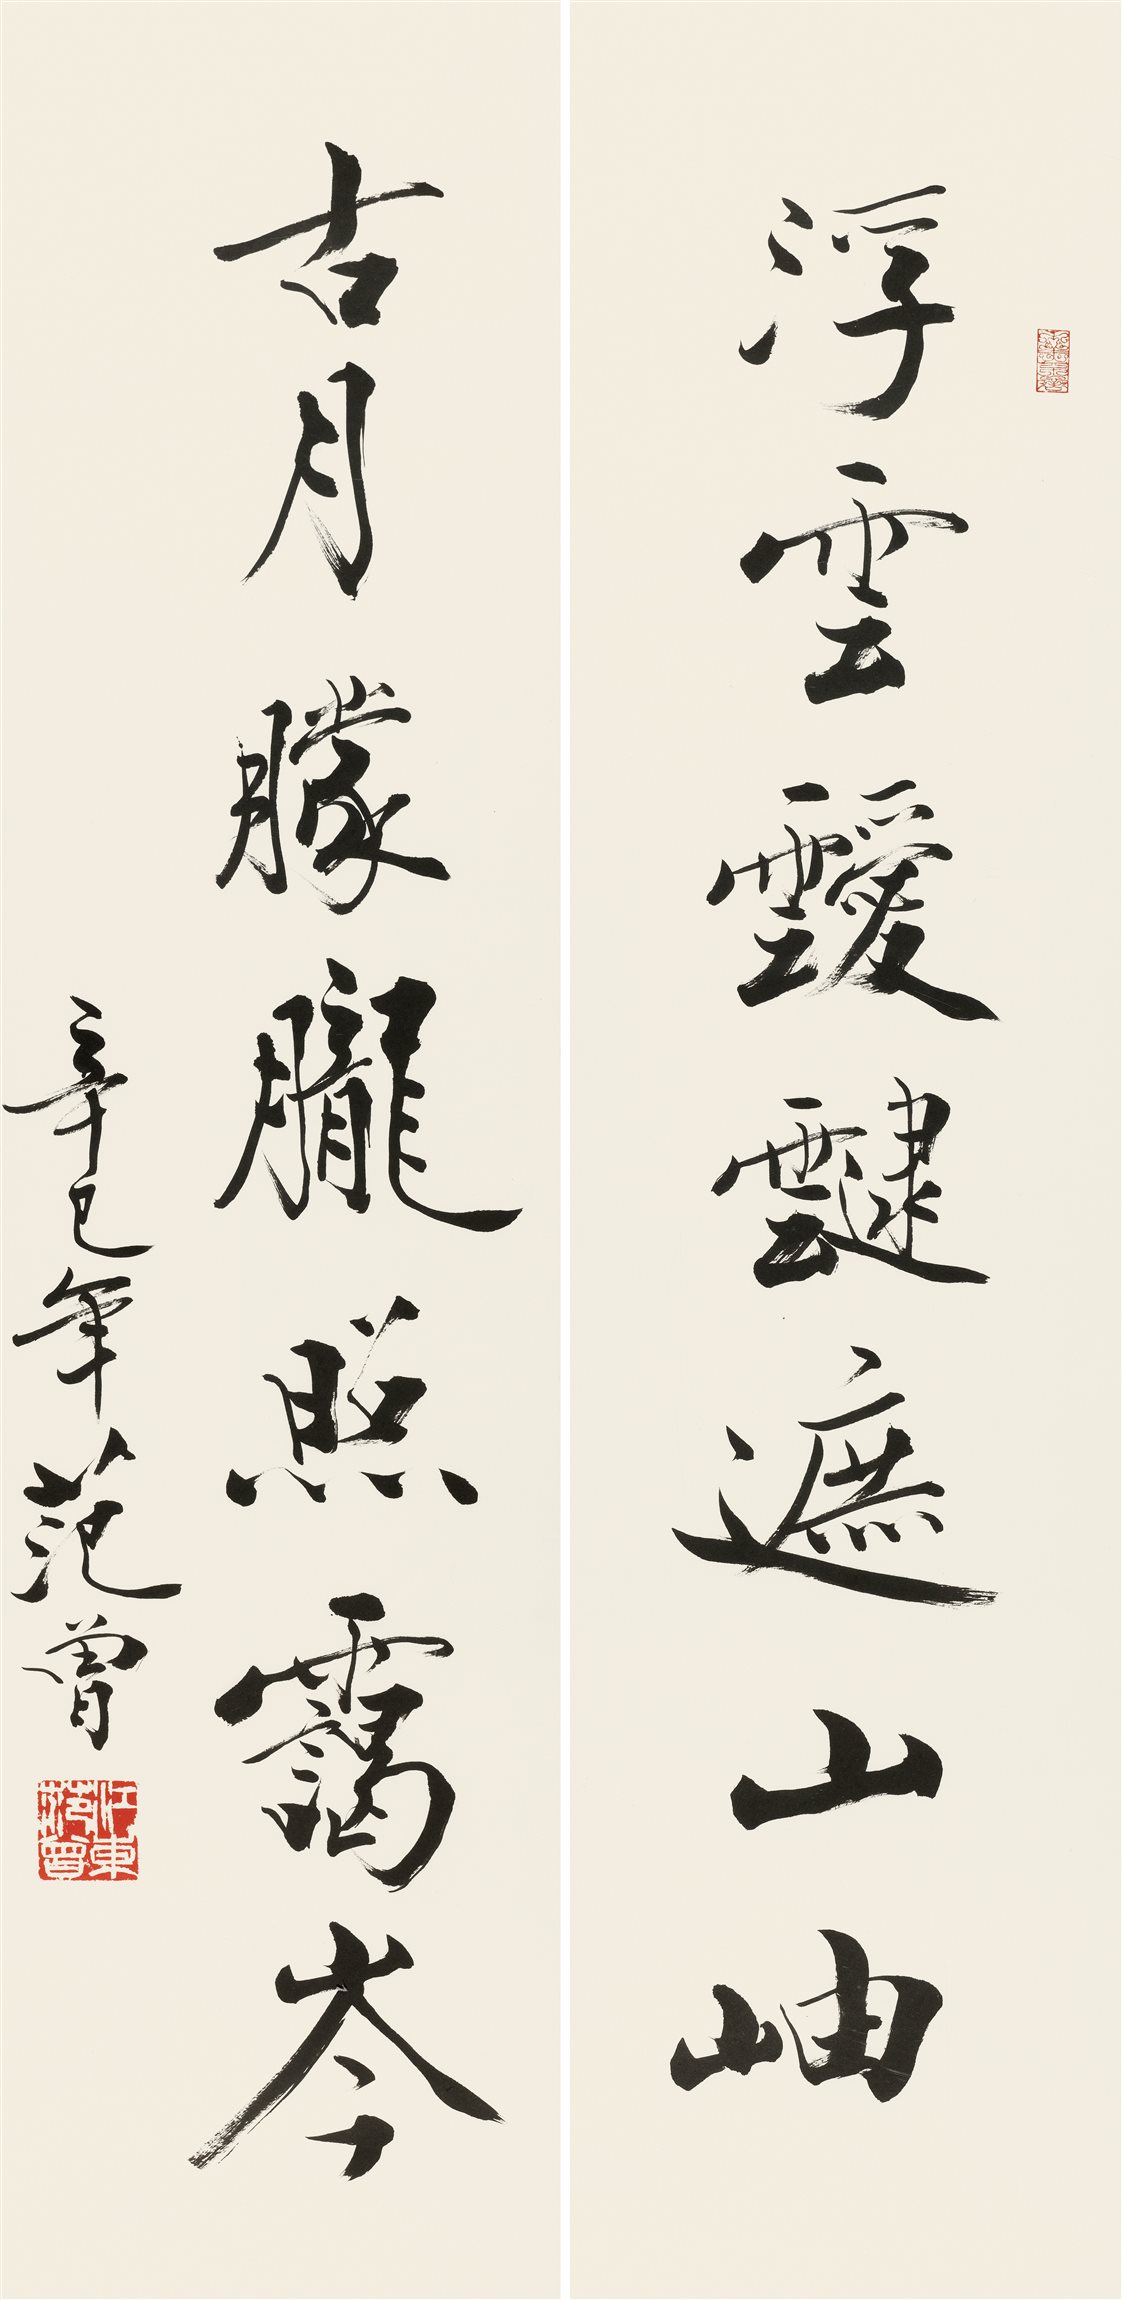 浮雲靉靆遮山岫
古月朦朧照靄岑
辛巳年范曾
江東范曾